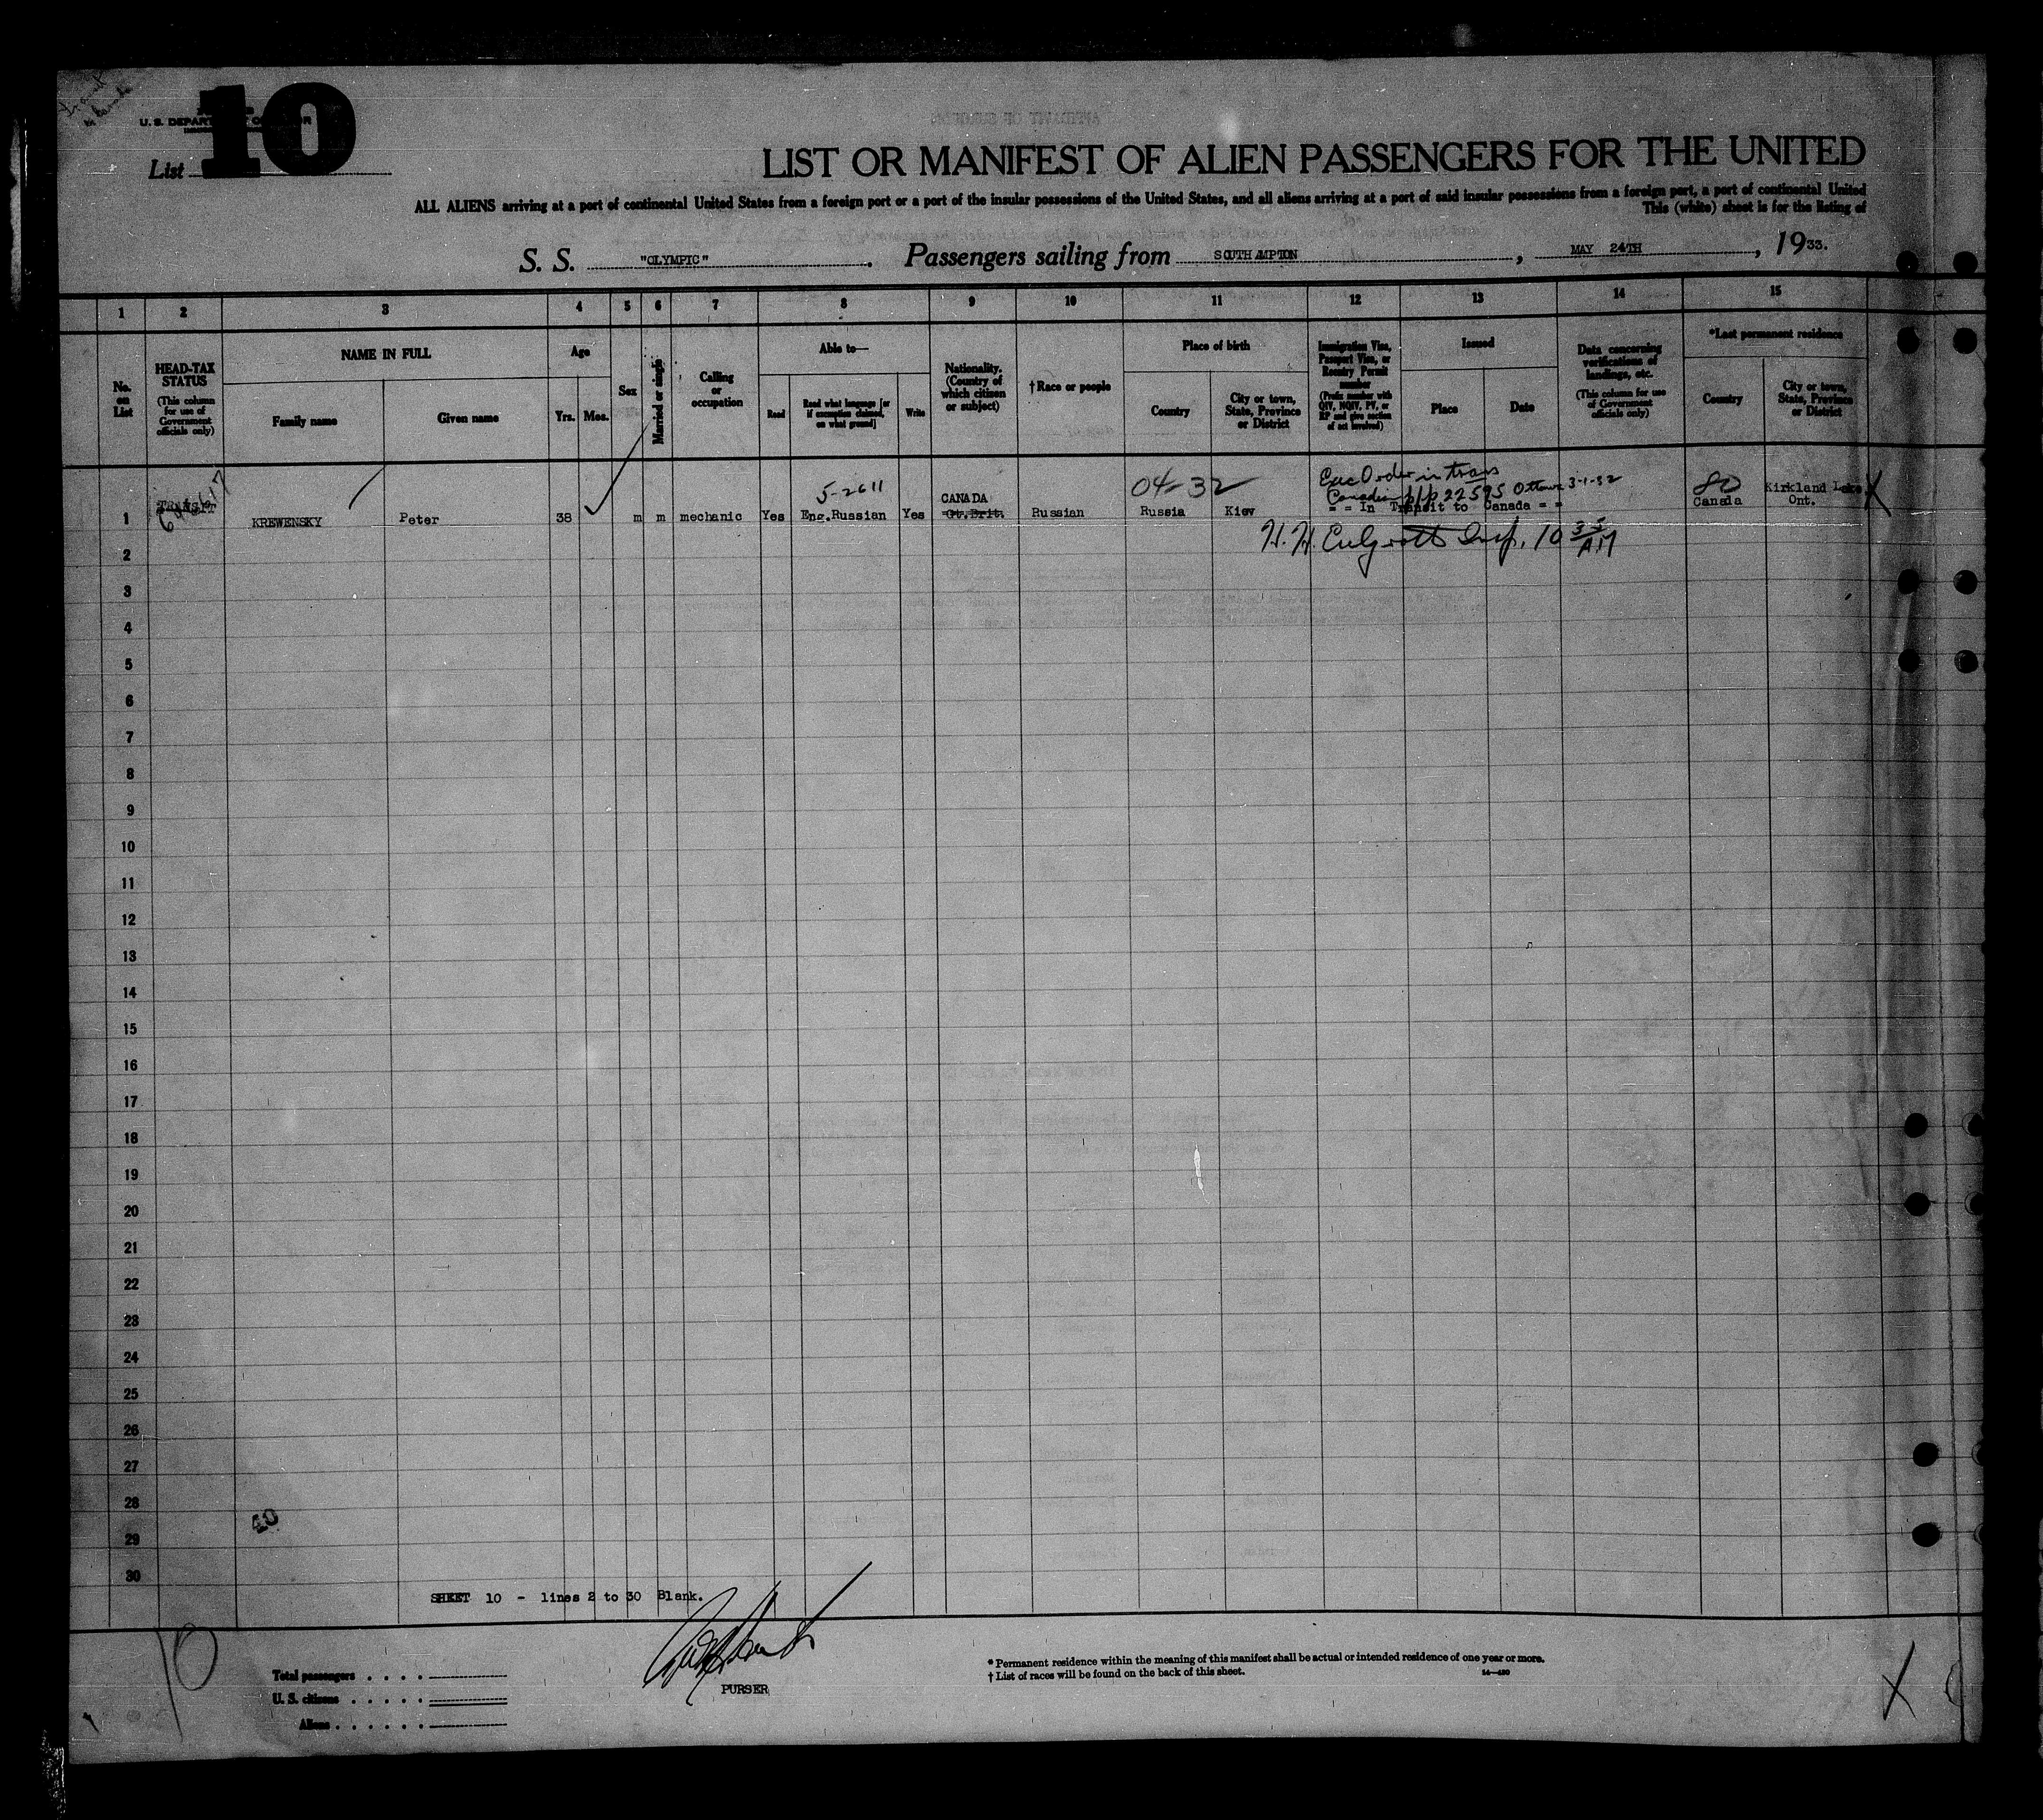 10
U. S. DEPARTMENT OF LABOR
List
LIST OR MANIFEST OF ALIEN PASSENGERS FOR THE UNITED
ALL ALIENS arriving at a port of continental United States from a foreign port or a port of the insular possessions of the United States, and all aliens arriving at a port of said insular possessions from a foreign port, a port of continental United
This (white) sheet is for the listing of
S. S. "OLYMPIC". Passengers sailing from SOUTHAMPTON, MAY 24TH, 1933.
1 2 3 4 5 6 7 8 9 10 11 12 13 14 15
No. on List
HEAD-TAX STATUS (This column for use of Government officials only)
NAME IN FULL
Family name
Given name
Age
Yrs. Mos.
Sex
Married or single
Calling or occupation
Able to—
Read
Read what language [or if exemption claimed, on what ground]
Write
Nationality. (Country of which citizen or subject)
†Race or people
Place of birth
Country
City or town, State, Province or District
Immigration Visa, Passport Visa, or Reentry Permit number (Prefix number with QIV, NQIV, PV, or RP and give section of act involved)
Issued
Place
Date
Data concerning verifications of landings, etc. (This column for use of Government officials only)
*Last permanent residence
Country
City or town, State, Province or District
5-2611
04-32
Exec Order in trans
Canadian p/p 22595 Ottawa 3-1-32
80
CANADA
1 TRANSIT KREWENSKY Peter 38 m m mechanic Yes Eng.Russian Yes Gt.Brit. Russian Russia Kiev = = In Transit to Canada = = Canada Kirkland Lake Ont. X
H. H. Insp. 10 35 AM
2
3
4
5
6
7
8
9
10
11
12
13
14
15
16
17
18
19
20
21
22
23
24
25
26
27
28
29
30
40
SHEET 10 - lines 2 to 30 Blank.
10
PURSER
Total passengers . . . .
U. S. citizens . . . . .
Aliens . . . . . .
* Permanent residence within the meaning of this manifest shall be actual or intended residence of one year or more.
† List of races will be found on the back of this sheet.
14—480
X